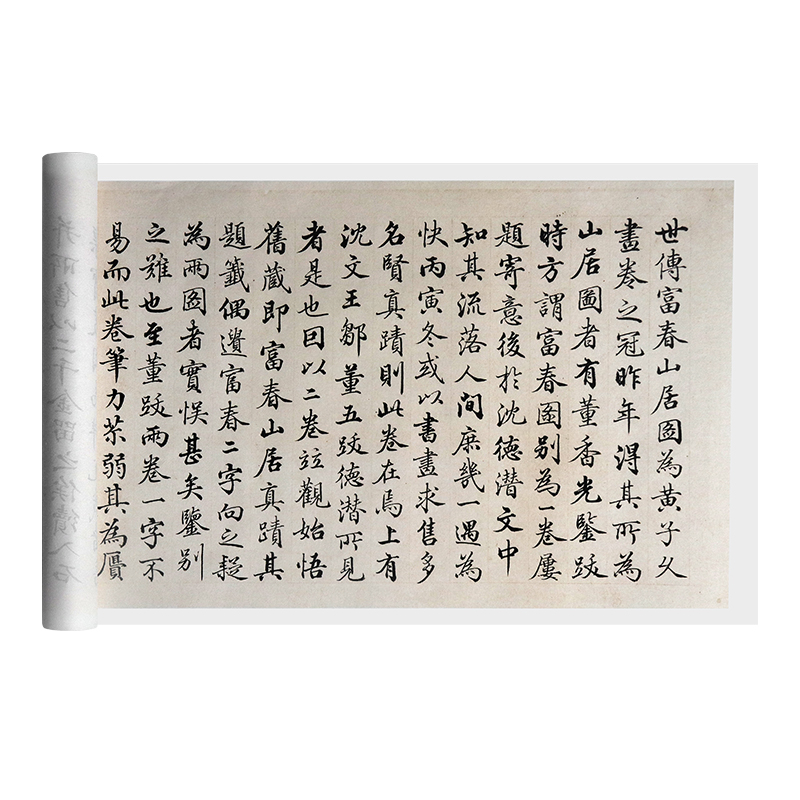 世傳富春山居圖為黃子久
畫卷之冠昨年得其所為
山居圖者有董香光鑒跋
時方謂富春圖別為一卷屢
題寄意後於沈德潛文中
知其流落人間庶幾一遇為
快丙寅冬或以書畫求售多
名賢真蹟則此卷在焉上有
沈文王鄒董五跋德潛所見
者是也因以二卷竝觀始悟
舊藏即富春山居真蹟其
題籤偶遺富春二字向之疑
為兩圖者實悞甚矣鑒別
之難也至董跋兩卷一字不
易而此卷筆力苶弱其為贗